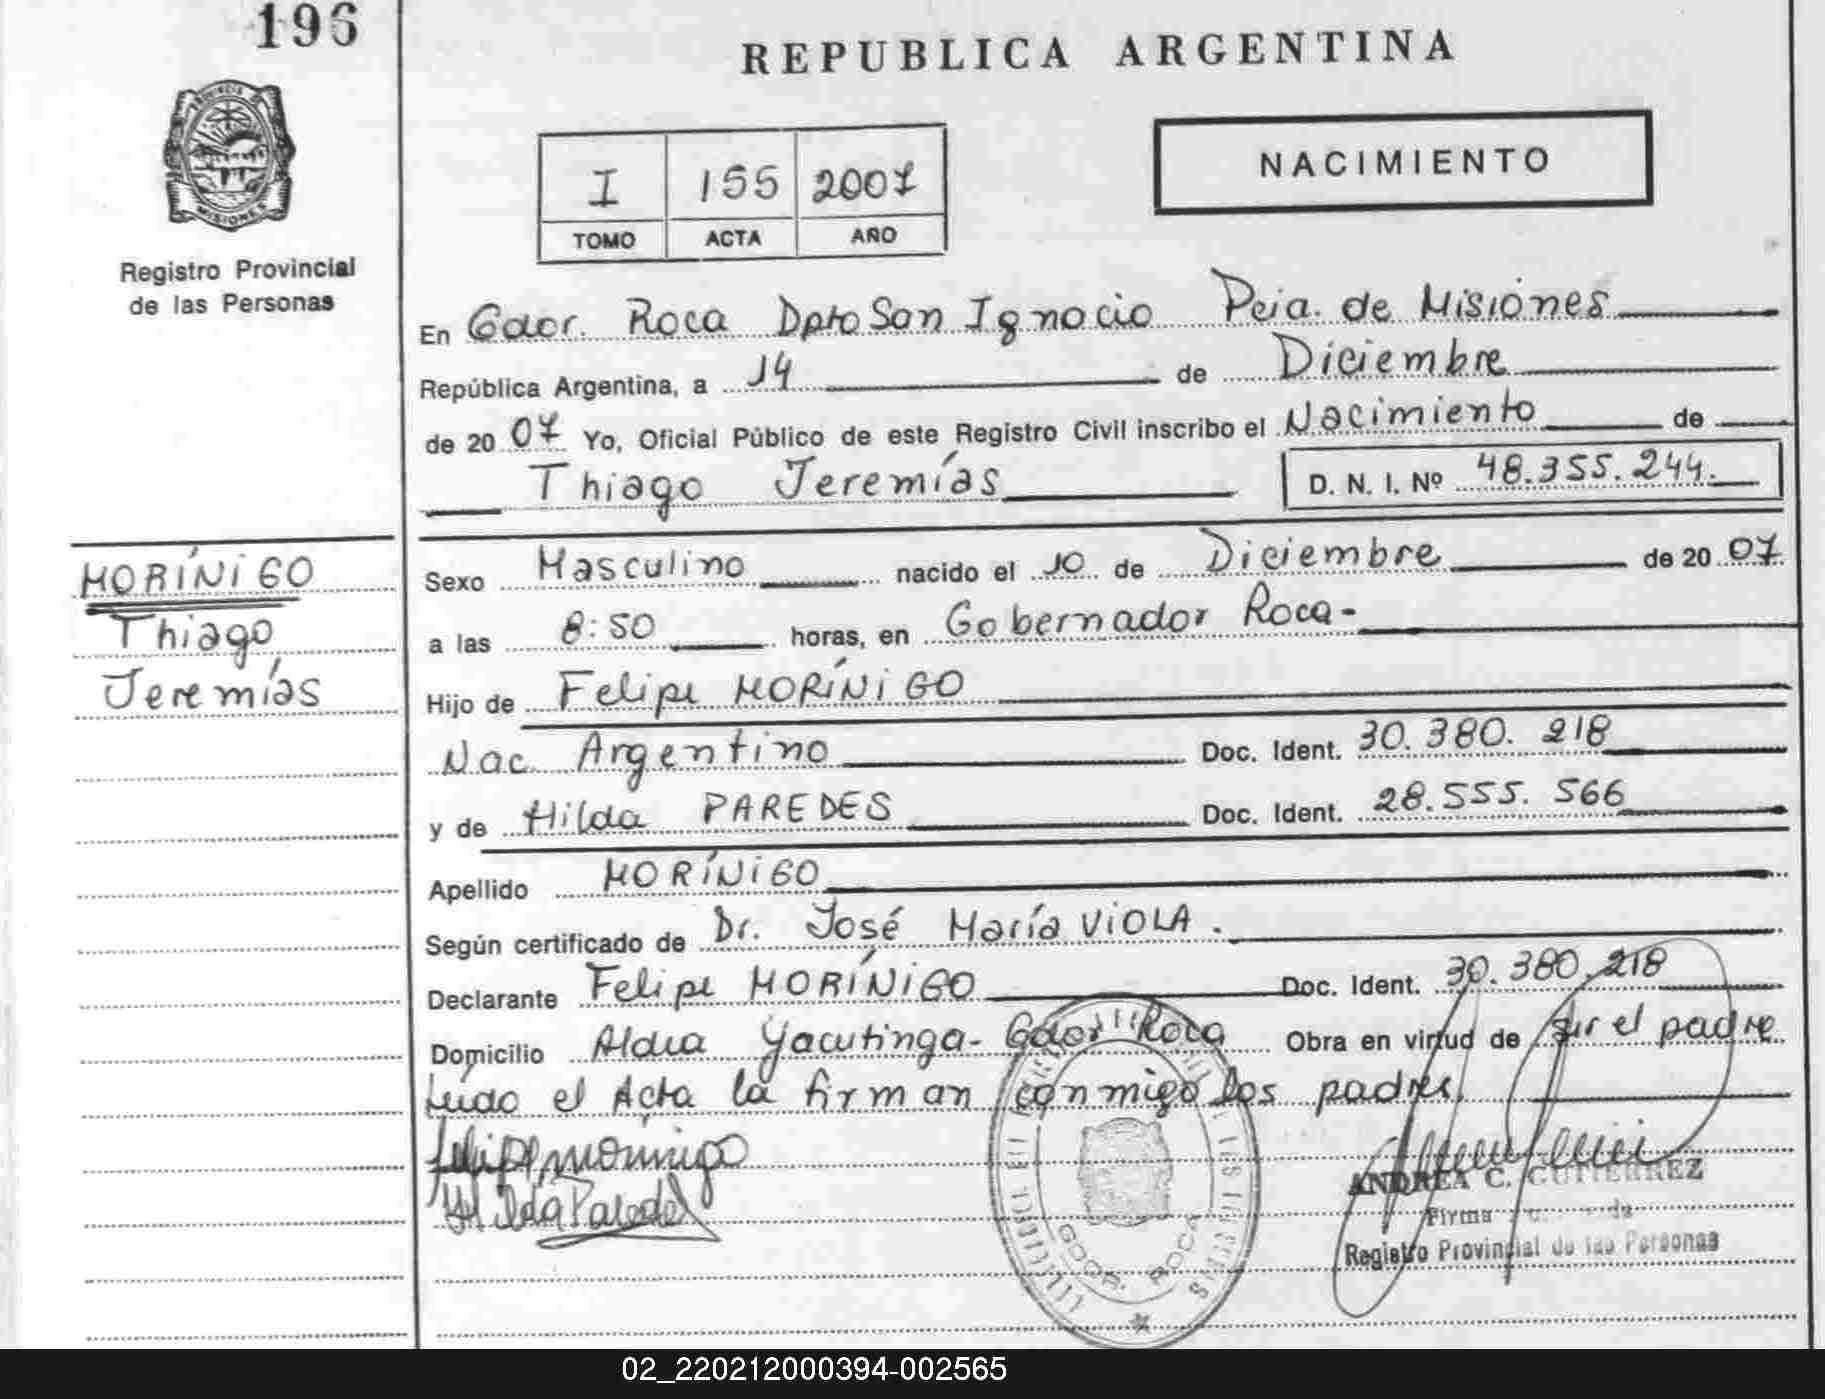 196
REPUBLICA ARGENTINA
PROVINCIA DE
MISIONES
Registro Provincial
de las Personas
I 155 2007
TOMO ACTA AÑO
NACIMIENTO
En Gdor. Roca Dpto San Ignacio Pcia. de Misiones
República Argentina, a 14 de Diciembre
de 2007 Yo, Oficial Público de este Registro Civil inscribo el Nacimiento de
Thiago Jeremías D. N. I. Nº 48.355.244.
MORÍNIGO
Thiago
Jeremías
Sexo Masculino nacido el 10 de Diciembre de 2007
a las 8:50 horas, en Gobernador Roca-
Hijo de Felipe MORÍNIGO
Nac. Argentino Doc. Ident. 30.380.218
y de Hilda PAREDES Doc. Ident. 28.555.566
Apellido MORÍNIGO
Según certificado de Dr. José María VIOLA.
Declarante Felipe MORÍNIGO Doc. Ident. 30.380.218
Domicilio Aldea Yacutinga- Gdor Roca Obra en virtud de ser el padre
Leido el Acta la firman conmigo los padres
Felipe morinigo
Hilda Paredes
GDOR. ROCA
ANDREA C. GUTIERREZ
Firma
Registro Provincial de las Personas
02_220212000394-002565